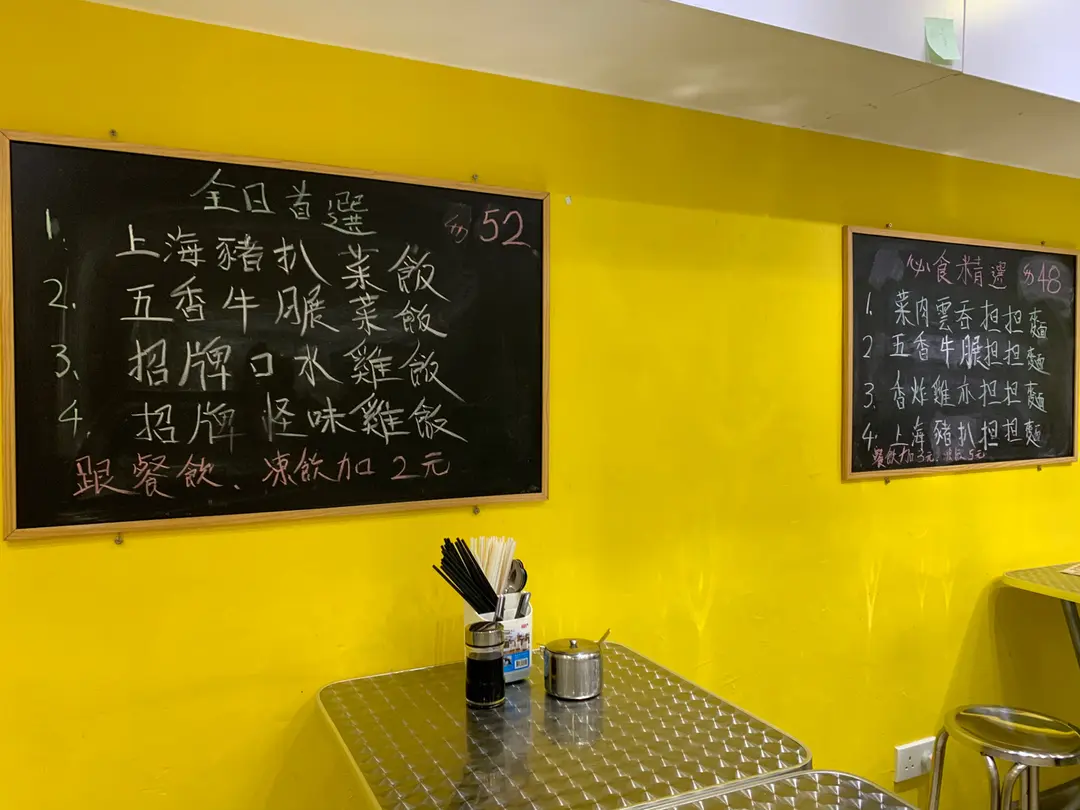 全日首選 $52
1. 上海豬扒菜飯
2. 五香牛𦟌菜飯
3. 招牌口水雞飯
4. 招牌怪味雞飯
跟餐飲、凍飲加2元
必食精選 $48
1. 菜肉雲吞担担麵
2 五香牛𦟌担担麵
3. 香炸雞亦担担麵
4. 上海豬扒担担麵
餐飲加3元、凍飲5元